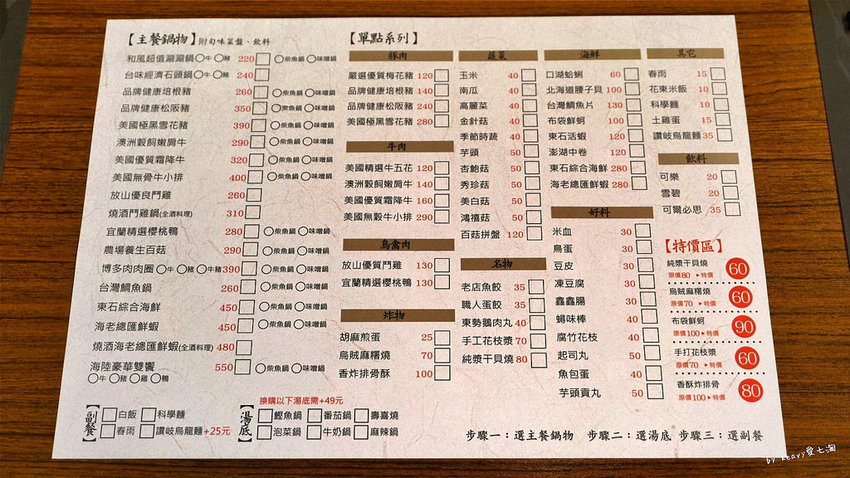 【主餐鍋物】附旬味菜盤、飲料
和風超值涮涮鍋○牛○豬 220 ○柴魚鍋○味噌鍋
台味經濟石頭鍋○牛○豬 240
品牌健康培根豬 260 ○柴魚鍋○味噌鍋
品牌健康松阪豬 350 ○柴魚鍋○味噌鍋
美國極黑雪花豬 390 ○柴魚鍋○味噌鍋
澳洲穀飼嫩肩牛 290 ○柴魚鍋○味噌鍋
美國優質霜降牛 320 ○柴魚鍋○味噌鍋
美國無骨牛小排 400 ○柴魚鍋○味噌鍋
放山優良鬥雞 260
燒酒鬥雞鍋(全酒料理) 310
宜蘭精選櫻桃鴨 280 ○柴魚鍋○味噌鍋
農場養生百菇 290 ○柴魚鍋○味噌鍋
博多肉肉圈○牛○豬○牛豬 390 ○柴魚鍋○味噌鍋
台灣鯛魚鍋 260 ○柴魚鍋○味噌鍋
東石綜合海鮮 450 ○柴魚鍋○味噌鍋
海老總匯鮮蝦 450 ○柴魚鍋○味噌鍋
燒酒海老總匯鮮蝦(全酒料理) 480
海陸豪華雙饗 550 ○柴魚鍋○味噌鍋
○牛○豬○雞○鴨
【副餐】
白飯 科學麵
春雨 讚岐烏龍麵+25元
【湯底】
換購以下湯底需+49元
鰹魚鍋 番茄鍋 壽喜燒
泡菜鍋 牛奶鍋 麻辣鍋
【單點系列】
豚肉
嚴選優質梅花豬 120
品牌健康培根豬 140
品牌健康松阪豬 240
美國極黑雪花豬 280
牛肉
美國精選牛五花 120
澳洲穀飼嫩肩牛 140
美國優質霜降牛 160
美國無穀牛小排 290
鳥禽肉
放山優質鬥雞 130
宜蘭精選櫻桃鴨 130
炸物
胡麻煎蛋 25
烏賊麻糬燒 70
香炸排骨酥 100
蔬菜
玉米 40
南瓜 40
高麗菜 40
金針菇 40
季節時蔬 40
芋頭 50
杏鮑菇 50
秀珍菇 50
美白菇 50
鴻禧菇 50
百菇拼盤 120
名物
老店魚餃 35
職人蛋餃 35
東勢鵝肉丸 40
手工花枝漿 70
純漿干貝燒 80
海鮮
口湖蛤蜊 60
北海道腰子貝 100
台灣鯛魚片 130
布袋鮮蚵 100
東石活蝦 120
澎湖中卷 120
東石綜合海鮮 280
海老總匯鮮蝦 280
好料
米血 30
鳥蛋 30
豆皮 30
凍豆腐 30
鑫鑫腸 30
蟳味棒 40
腐竹花枝 40
起司丸 50
魚包蛋 40
芋頭貢丸 50
其它
春雨 15
花東米飯 10
科學麵 10
土雞蛋 15
讚岐烏龍麵 35
飲料
可樂 20
雪碧 20
可爾必思 35
【特價區】
純漿干貝燒
原價80 ▸特價 60
烏賊麻糬燒
原價70 ▸特價 60
布袋鮮蚵
原價100▸特價 90
手打花枝漿
原價70 ▸特價 60
香酥炸排骨
原價100▸特價 80
步驟一：選主餐鍋物 步驟二：選湯底 步驟三：選副餐